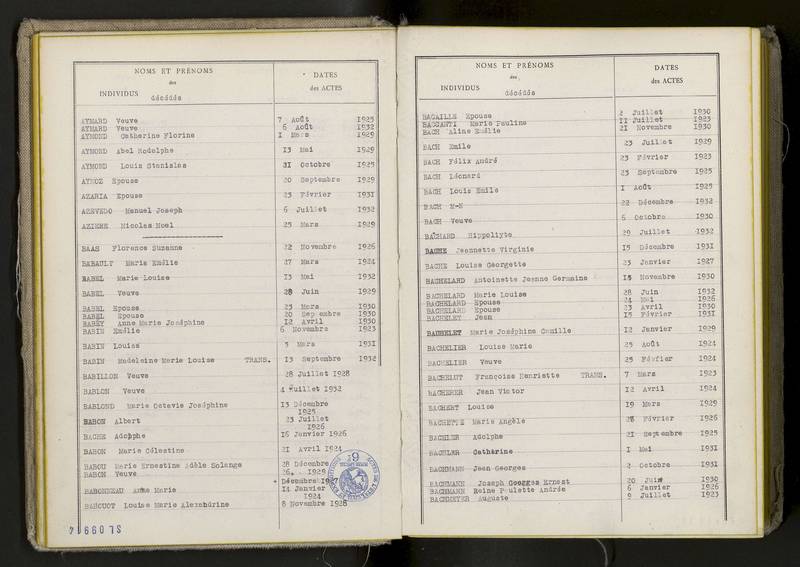 NOMS ET PRÉNOMS
des
INDIVIDUS décédés
DATES
des ACTES
AYMARD Veuve 7 Août 1925
AYMARD Veuve 6 Août 1932
AYMOND Catherine Florine 1 Mars 1929
AYMOND Abel Rodolphe 13 Mai 1929
AYMOND Louis Stanislas 31 Octobre 1925
AYMOZ Epouse 20 Septembre 1929
AZARIA Epouse 23 Février 1931
AZEVEDO Manuel Joseph 6 Juillet 1932
AZIERE Nicolas Noel 25 Mars 1929
BAAS Florence Suzanne 22 Novembre 1926
BABAULT Marie Emélie 27 Mars 1924
BABEL Marie Louise 13 Mai 1932
BABEL Veuve 28 Juin 1929
BABEL Epouse 23 Mars 1930
BABEL Epouse 20 Septembre 1930
BABEY Anne Marie Joséphine 12 Avril 1930
BABIN Emélie 6 Novembre 1923
BABIN Louise 5 Mars 1931
BABIN Madeleine Marie Louise TRANS. 13 Septembre 1932
BABILLON Veuve 28 Juillet 1928
BABLON Veuve 4 Juillet 1932
BABLOND Marie Octavie Joséphine 13 Décembre
1925
BABON Albert 23 Juillet
1926
BACHE Adolphe 16 Janvier 1926
BABON Marie Célestine 21 Avril 1924
BABOU Marie Ernestine Adèle Solange 28 Décembre
BABON Veuve 26. 1929
Décembre 1927
BABONNEAU Anne Marie 14 Janvier
1924
BABOUOT Louise Marie Alexandrine 8 Novembre 1928
NOMS ET PRÉNOMS
des
INDIVIDUS décédés
DATES
des ACTES
BACAILLE Epouse 2 Juillet 1930
BACCANTI Marie Pauline 11 Juillet 1923
BACH Aline Emélie 21 Novembre 1930
BACH Emile 23 Juillet 1929
BACH Félix André 23 Février 1923
BACH Léonard 23 Septembre 1925
BACH Louis Emile 1 Août 1925
BACH M-N 22 Décembre 1932
BACH Veuve 6 Octobre 1930
BACHARD Hippolyte 29 Juillet 1932
BACHE Jeannette Virginie 15 Décembre 1931
BACHE Louise Georgette 23 Janvier 1927
BACHELARD Antoinette Jeanne Germaine 18 Novembre 1930
BACHELARD Marie Louise 28 Juin 1932
BACHELARD Epouse 24 Mai 1926
BACHELARD Epouse 23 Avril 1930
BACHELET Jean 15 Février 1931
BACHELET Marie Joséphine Camille 12 Janvier 1929
BACHELIER Louise Marie 25 Août 1924
BACHELIER Veuve 25 Février 1924
BACHELUT Françoise Henriette TRANS. 7 Mars 1923
BACHERER Jean Victor 12 Avril 1924
BACHERT Louise 19 Mars 1929
BACHETTE Marie Angèle 28 Février 1926
BACHLER Adolphe 21 Septembre 1925
BACHLER Cathérine 1 Mai 1931
BACHMANN Jean Georges 2 Octobre 1931
BACHMANN Joseph Georges Ernest 20 Juin 1930
BACHMANN Reine Paulette Andrée 6 Janvier 1926
BACHOFFER Auguste 9 Juillet 1923